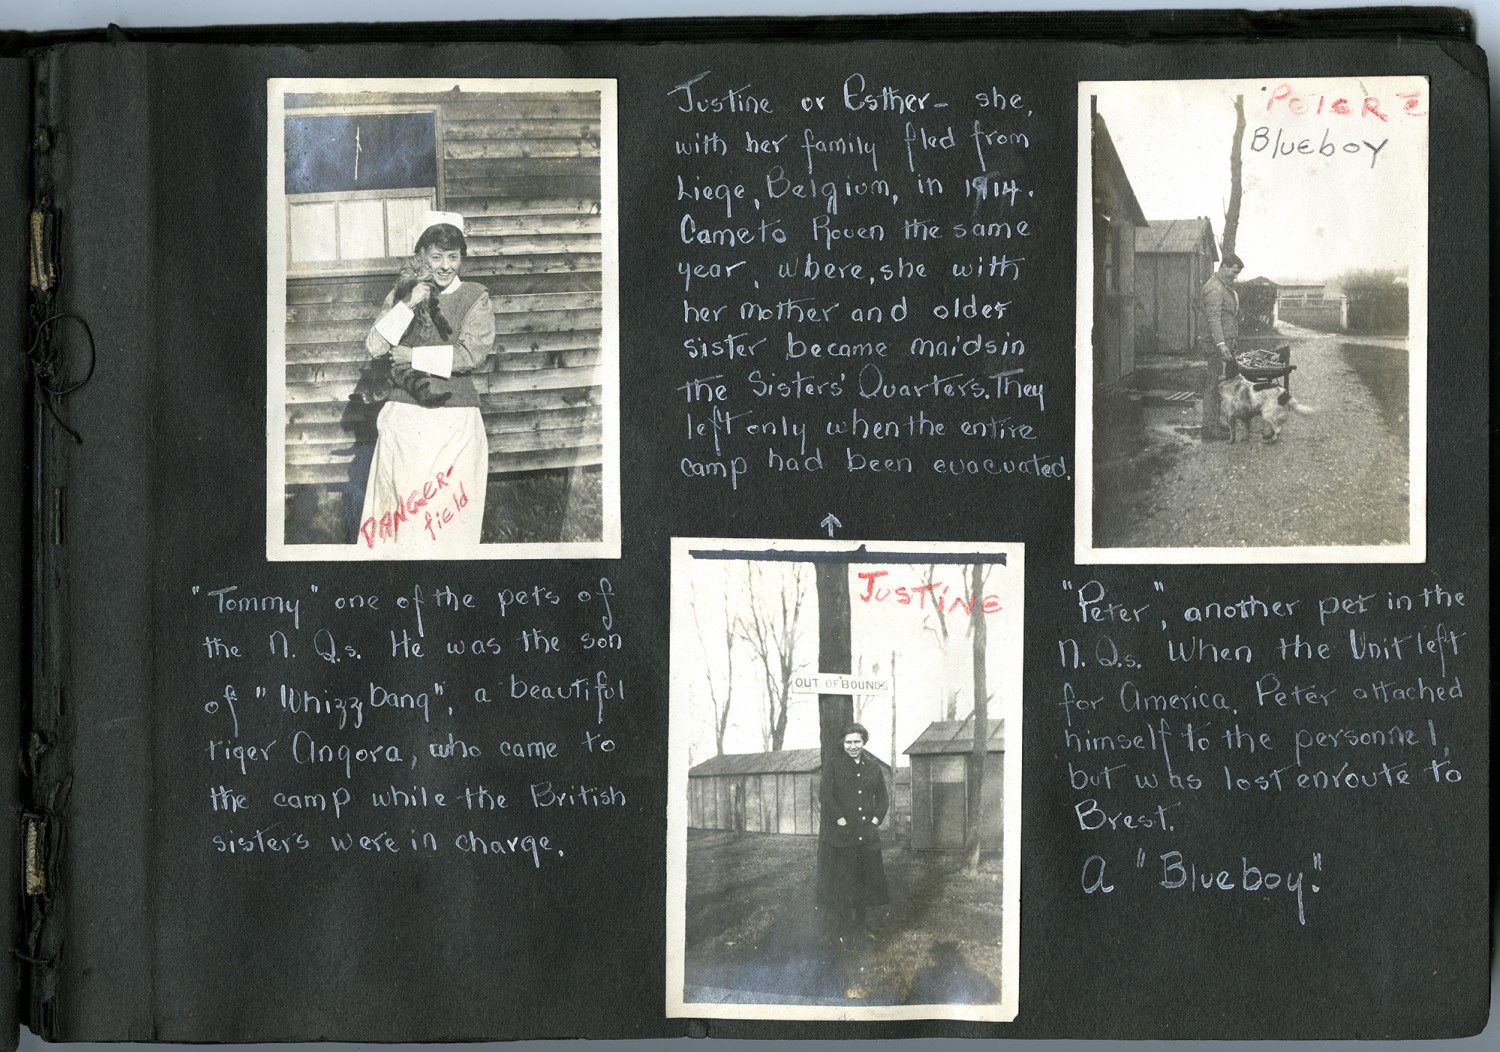 DANGER-
field
"Tommy" one of the pets of
the N. Qs. He was the son
of "Whizz Bang", a beautiful
tiger Angora, who came to
the camp while the British
sisters were in charge.
Justine or Esther- she,
with her family fled from
Liege, Belgium, in 1914.
Came to Rouen the same
year, where, she with
her mother and older
sister became maids in
the Sisters' Quarters. They
left only when the entire
camp had been evacuated.
JUSTINE
OUT OF BOUNDS
PETER &
Blueboy
"Peter", another pet in the
N. Qs. When the Unit left
for America, Peter attached
himself to the personnel,
but was lost enroute to
Brest.
A "Blueboy".